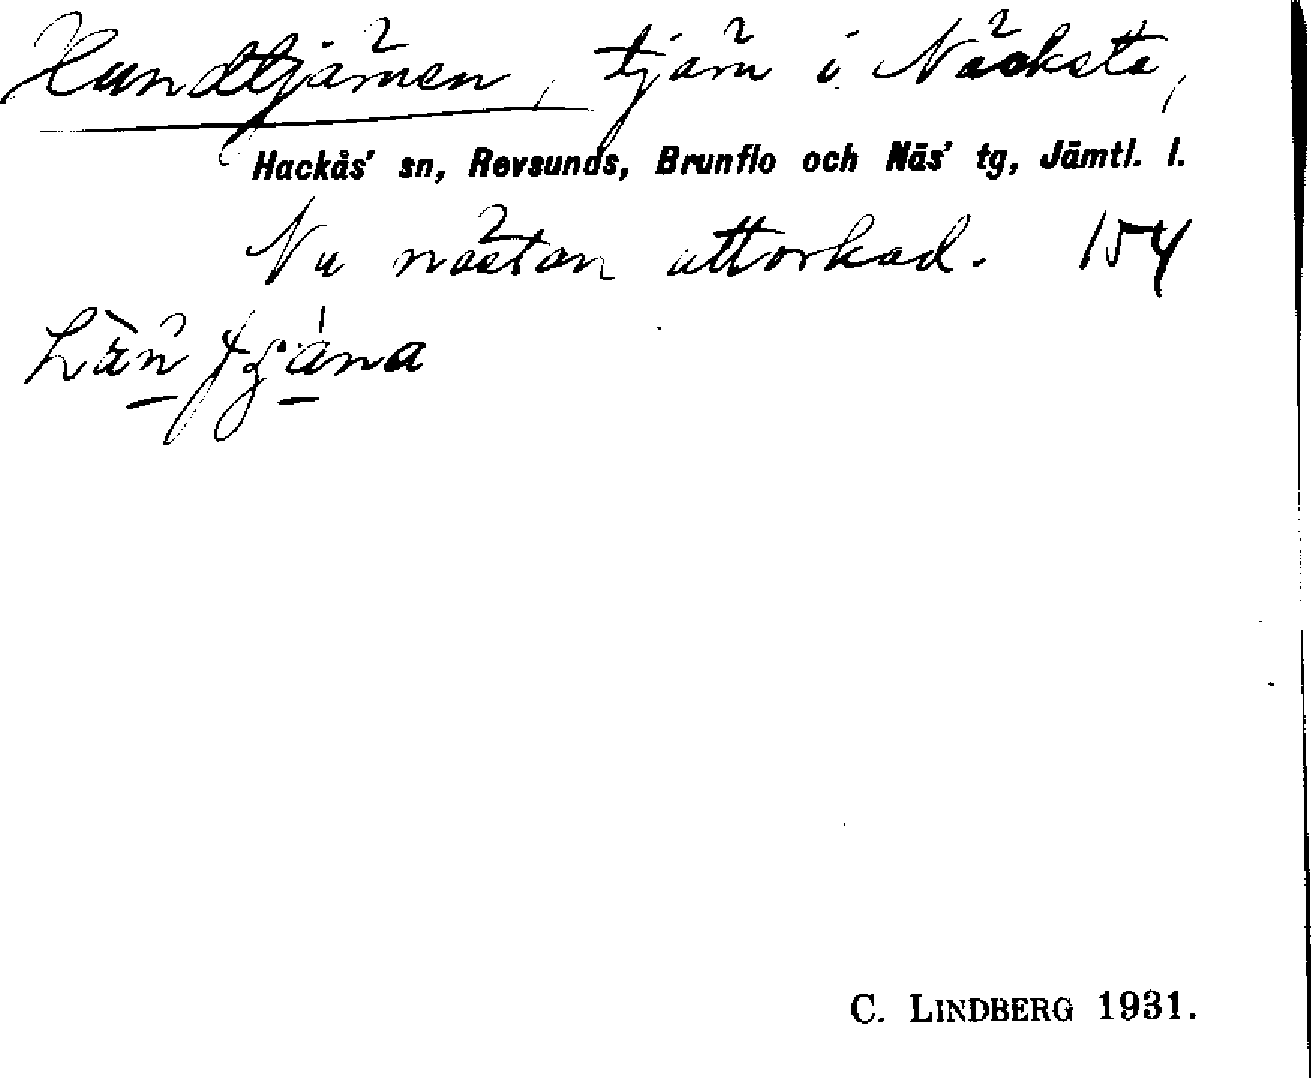 Hundtjärnen, tjärn i Näcksta,
Hackås' sn, Revsunds, Brunflo och Näs' tg, Jämtl. l.
Nu nästan uttorkad. 154
C. LINDBERG 1931.